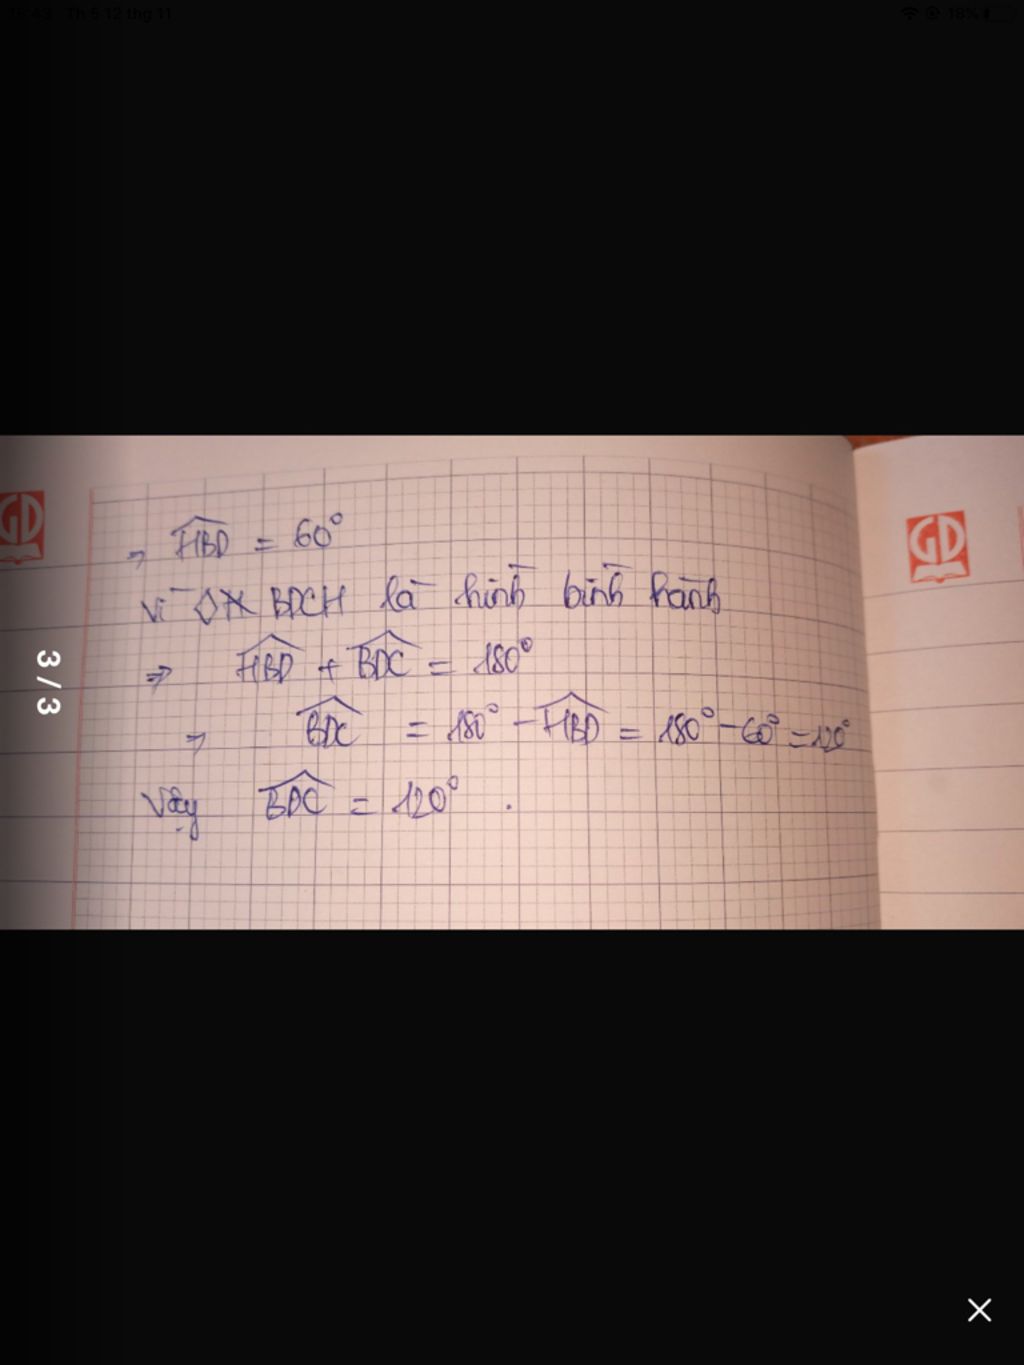 Th 5 12 thg 11
18%
GD
GD
⇒ \widehat{HBD} = 60°
Vì ◇ BDCH là hình bình hành
⇒ \widehat{HBD} + \widehat{BDC} = 180°
⇒ \widehat{BDC} = 180° - \widehat{HBD} = 180° - 60° = 120°
Vậy \widehat{BDC} = 120°.
3 / 3